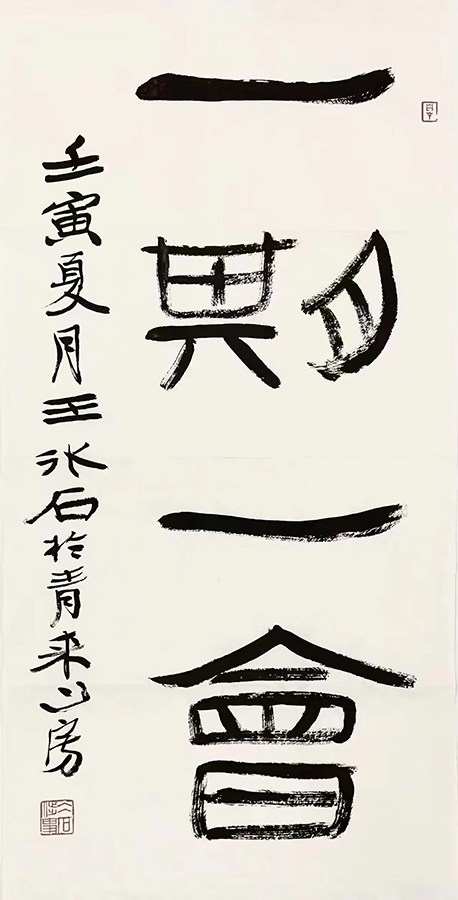 一期一會
壬寅夏月王冰石於青来山房